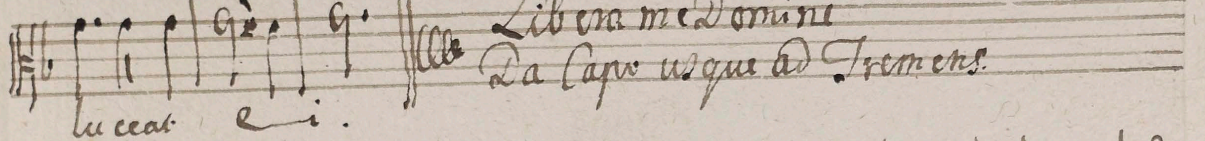 Libera me Domine
Da Capo usque ad Tremens.
luceat e i.